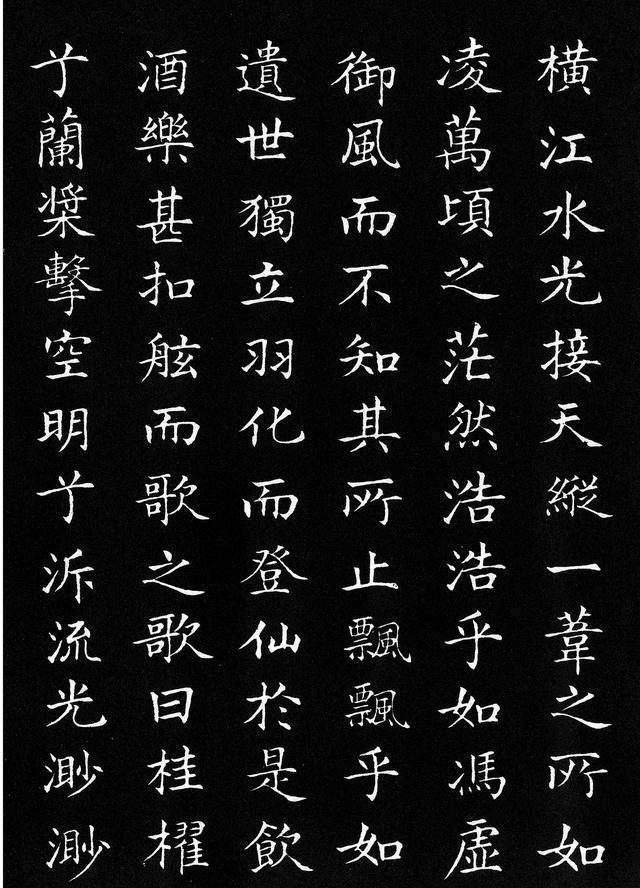 橫江水光接天縱一葦之所如
凌萬頃之茫然浩浩乎如馮虛
御風而不知其所止飄飄乎如
遺世獨立羽化而登仙於是飲
酒樂甚扣舷而歌之歌曰桂櫂
兮蘭槳擊空明兮泝流光渺渺